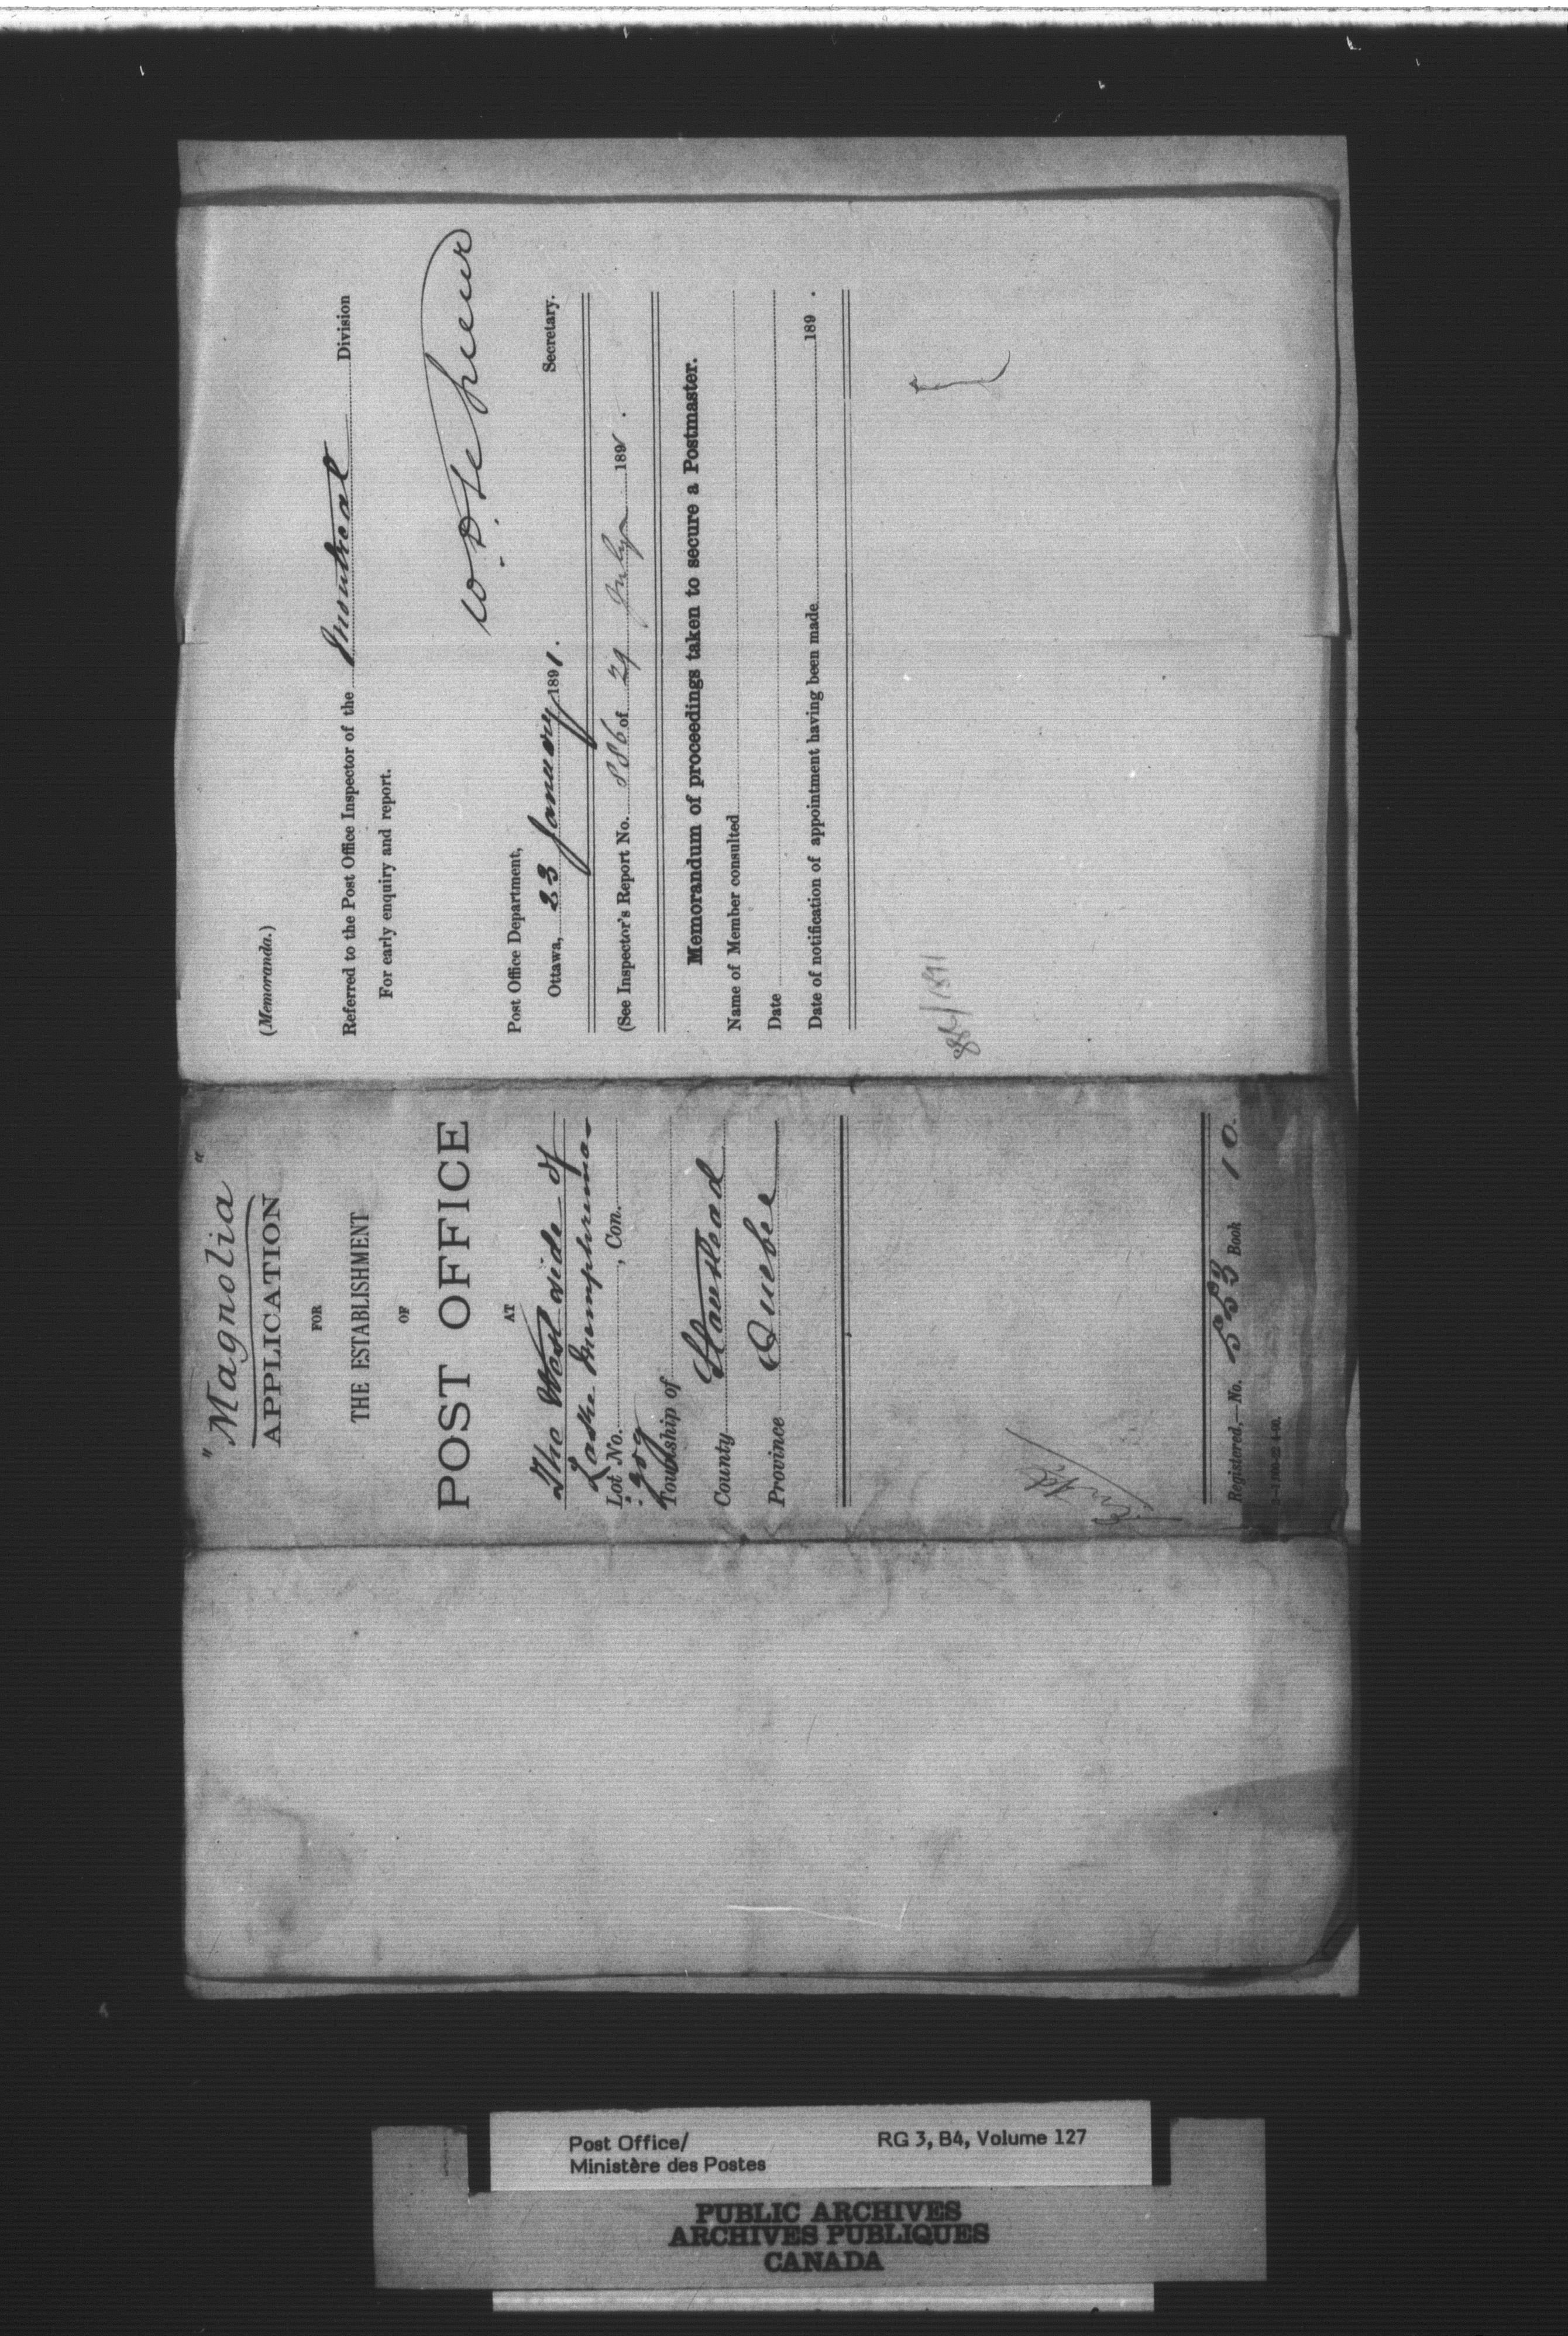 "Magnolia"
APPLICATION
FOR
THE ESTABLISHMENT
OF
POST OFFICE
AT
The West side of
Lake Memphrema-
Lot No. , Con.
:gog
Township of
County Stanstead
Province Quebec
Registered,—No. 553 Book 10.
(Memoranda.)
Referred to the Post Office Inspector of the Montreal Division
For early enquiry and report.
W.D. LeSueur
Post Office Department, Secretary.
Ottawa, 23 January 1891.
(See Inspector's Report No. 886 of 29 July 1891.
Memorandum of proceedings taken to secure a Postmaster.
Name of Member consulted
Date
Date of notification of appointment having been made 189 .
886/1891
Post Office/
Ministère des Postes
RG 3, B4, Volume 127
PUBLIC ARCHIVES
ARCHIVES PUBLIQUES
CANADA